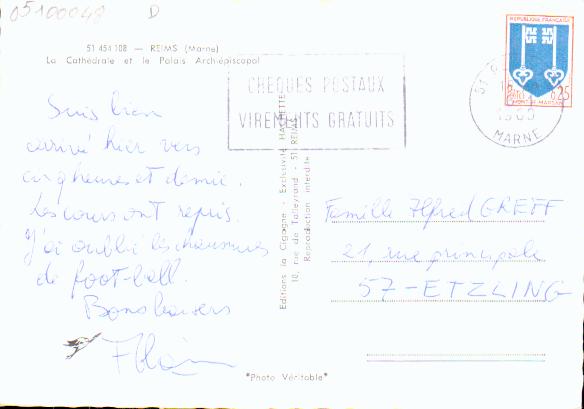 05100049 D
51 454 108 — REIMS (Marne)
La Cathédrale et le Palais Archiépiscopal
Suis bien
arrivé hier vers
cinq heures et demie.
Les cours ont repris.
J'ai oublié les chaussures
de foot-ball.
Bons baisers
CHEQUES POSTAUX
VIREMENTS GRATUITS
REPUBLIQUE FRANÇAISE
0,25
MONT-DE-MARSAN
51
MARNE
Editions la Cigogne - Exclusivité HACHETTE
10, rue de Talleyrand - 51 REIMS
Reproduction interdite
Famille Alfred GREFF
21, rue principale
57-ETZLING
"Photo Véritable"